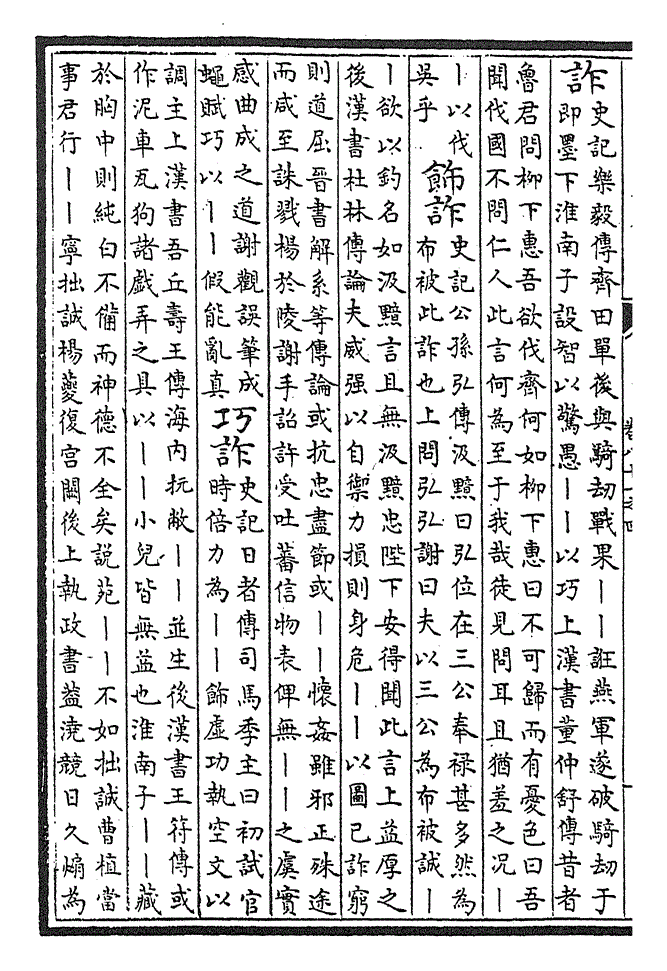 詐史記樂毅傳齊田單後與騎劫戰果丨丨誑燕軍遂破騎劫于
即墨下淮南子設智以驚愚丨丨以巧上漢書董仲舒傳昔者
魯君問柳下惠吾欲伐齊何如柳下惠曰不可歸而有憂色曰吾
聞伐國不問仁人此言何為至于我哉徒見問耳且猶羞之况丨
丨以伐
吳乎
飾詐史記公孫弘傳汲黯曰弘位在三公奉禄甚多然為
布被此詐也上問弘弘謝曰夫以三公為布被誠丨
丨欲以釣名如汲黯言且無汲黯忠陛下安得聞此言上益厚之
後漢書杜林傳論夫威强以自禦力損則身危丨丨以圖已詐窮
則道屈晉書解系等傳論或抗忠盡節或丨丨懷姦雖邪正殊途
而咸至誅戮楊於陵謝手詔許受吐蕃信物表俾無丨丨之虞實
感曲成之道謝觀誤筆成
蠅賦巧以丨丨假能亂真
巧詐史記日者傳司馬季主曰初試官
時倍力為丨丨飾虛功執空文以
調主上漢書吾丘壽王傳海内抏敝丨丨並生後漢書王符傳或
作泥車瓦狗諸戲弄之具以丨丨小兒皆無益也淮南子丨丨藏
於胸中則純白不備而神德不全矣説苑丨丨不如拙誠曹植當
事君行丨丨寧拙誠楊夔復宫闕後上執政書葢澆競日久煽為